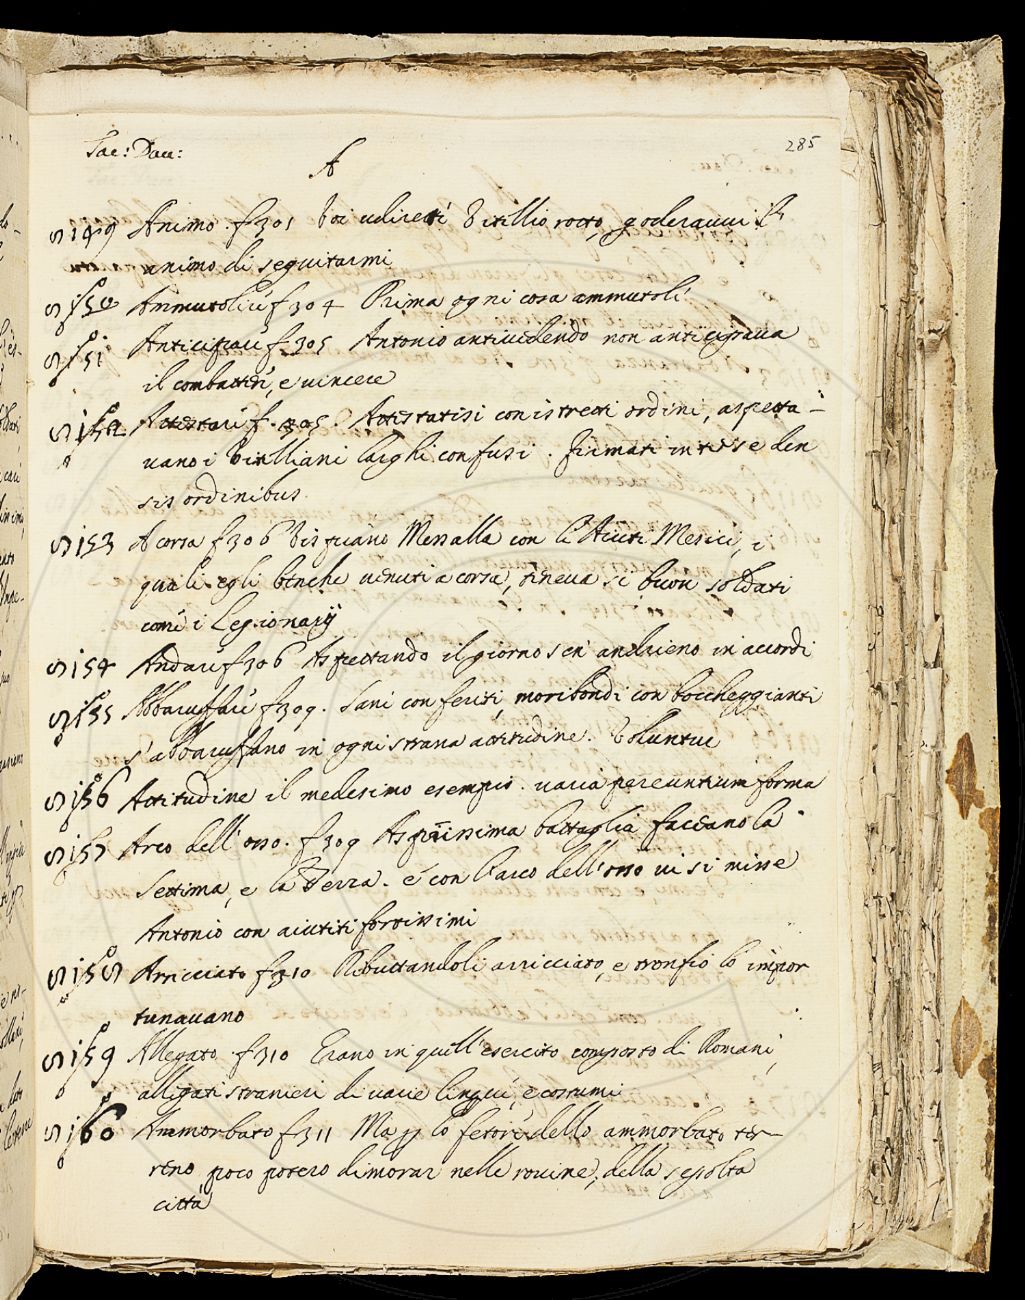 Tac: Dau:
A
285
S 149 Animo. f 301 Voi udirete Vitellio rotto, goderavvi l'
animo di seguitarmi
S 150 Ammutolire f 304 Prima ogni cosa ammutolì
S 151 Anticipare f 305 Antonio antivedendo non anticipava
il combattere, e vincere
S 152 Attestare f. 305. Attestatisi con istretti ordini, aspetta-
vano i Vitelliani larghi confusi. firmati in te se den
sis ordinibus
S 153 A corsa f 306 Vipsciano Messalla con li Aiuti Mesici, i
quali egli benche venuti a corsa, tineva si buon soldati
come i Legionarij
S 154 Andare f 306 Aspettando il giorno sen' andrieno in accordi
S 155 Abbaruffare f 309. Sani con feriti, moribondi con boccheggianti
s'abbaruffano in ogni strana attitudine. Voluntur
S 156 Attitudine il medesimo esempio. varia pereuntium forma
S 157 Arco dell' osso. f 309 Asprissima battaglia faceano la
Settima, e la Terza. e con l'arco dell' osso vi si misse
Antonio con aiutiti fortissimi
S 158 Arricciato f 310 Ributtandoli arricciato, e tronfio lo impor
tunavano
S 159 Allegato f 310 Erano in quell' esercito composto di Romani,
alligati stranieri di varie lingue, e costumi
S 160 Ammorbato f 311 Ma pp lo fetore dello ammorbato ter-
reno, poco potero dimorar nelle rovine, della sepolta
città